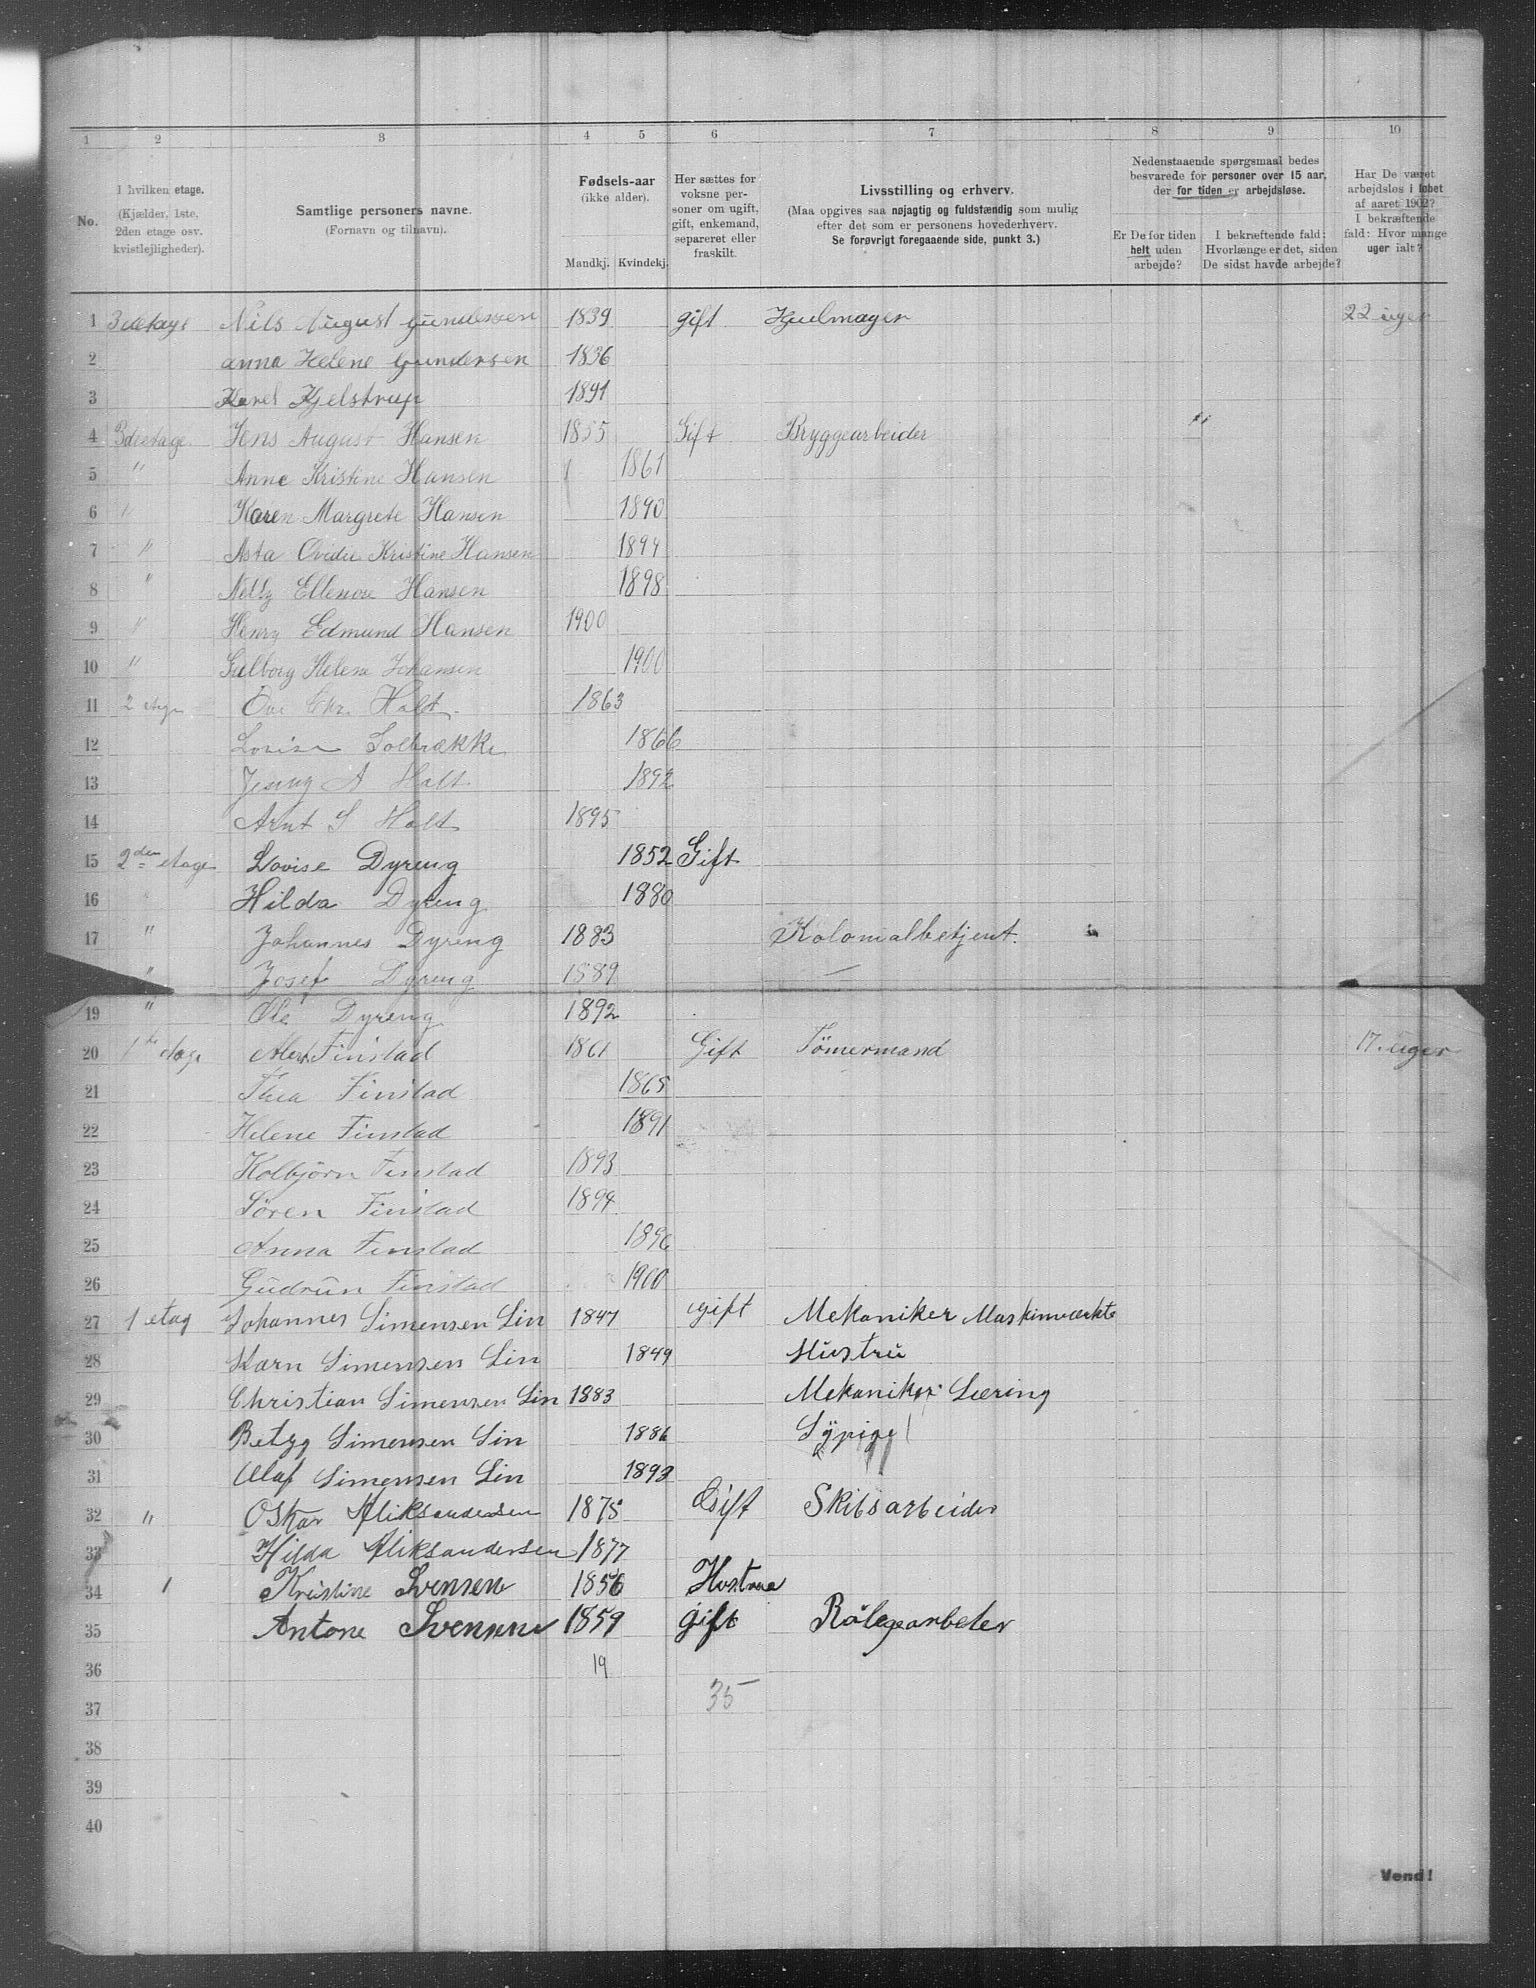 1 2 3 4 5 6 7 8 9 10
No.
I hvilken etage.
(Kjælder, 1ste,
2den etage osv.
kvistlejligheder).
Samtlige personers navne.
(Fornavn og tilnavn).
Fødsels-aar
(ikke alder).
Mandkj. Kvindekj.
Her sættes for
voksne per-
soner om ugift,
gift, enkemand,
separeret eller
fraskilt.
Livsstilling og erhverv.
(Maa opgives saa nøjagtig og fuldstændig som mulig
efter det som er personens hovederhverv.
Se forøvrigt foregaaende side, punkt 3.)
Nedenstaaende spørgsmaal bedes
besvarede for personer over 15 aar,
der for tiden er arbejdsløse.
Er De for tiden
helt uden
arbejde?
I bekræftende fald:
Hvorlænge er det, siden
De sidst havde arbejde?
Har De været
arbejdsløs i løbet
af aaret 1902?
I bekræftende
fald: Hvor mange
uger ialt?
1 3de etage Nils August Gundersen 1839 gift Hjulmager 22 uger
2 Anna Helene Gundersen 1836
3 Karel Kjelstrup 1891
4 3de etage Jens August Hansen 1855 Gift Bryggearbeider "
5 " Anne Kristine Hansen 1861
6 " Karen Margrete Hansen 1890
7 " Asta Ovidie Kristine Hansen 1894
8 " Nelly Ellenore Hansen 1898
9 " Henry Edmund Hansen 1900
10 " Gulborg Helene Johansen 1900
11 2 etage Ove Chr. Holt 1863
12 Lovise Solbrække 1866
13 Jenny A Holt 1892
14 Arnt S Holt 1895
15 2den etage Lovise Dyreng 1852 Gift
16 " Hilda Dyreng 1880
17 " Johannes Dyreng 1883 Kolonialbetjent.
" Josef Dyreng 1889 —
19 " Ole Dyreng 1892
20 1ste etage Albert Finstad 1861 Gift Tömermand 17 uger
21 Thea Finstad 1865
22 Helene Finstad 1891
23 Kolbjörn Finstad 1893
24 Sören Finstad 1894
25 Anna Finstad 1896
26 Gudrun Finstad 1900
27 1 etag Johannes Simensen Lin 1847 gift Mekaniker Maskinværkte
28 Karn Simensen Lin 1849 Hustru
29 Christian Simensen Lin 1883 Mekaniker Læring
30 Betzy Simensen Lin 1886 Sypige
31 Olaf Simensen Lin 1893
32 " Oskar Aliksandersen 1875 Gift Skibsarbeider
33 Hilda Aliksandersen 1877
34 " Kristine Svensen 1856 Hustrue
35 Antone Svensen 1859 gift
36 19
37 35
38
39
40
Vend!